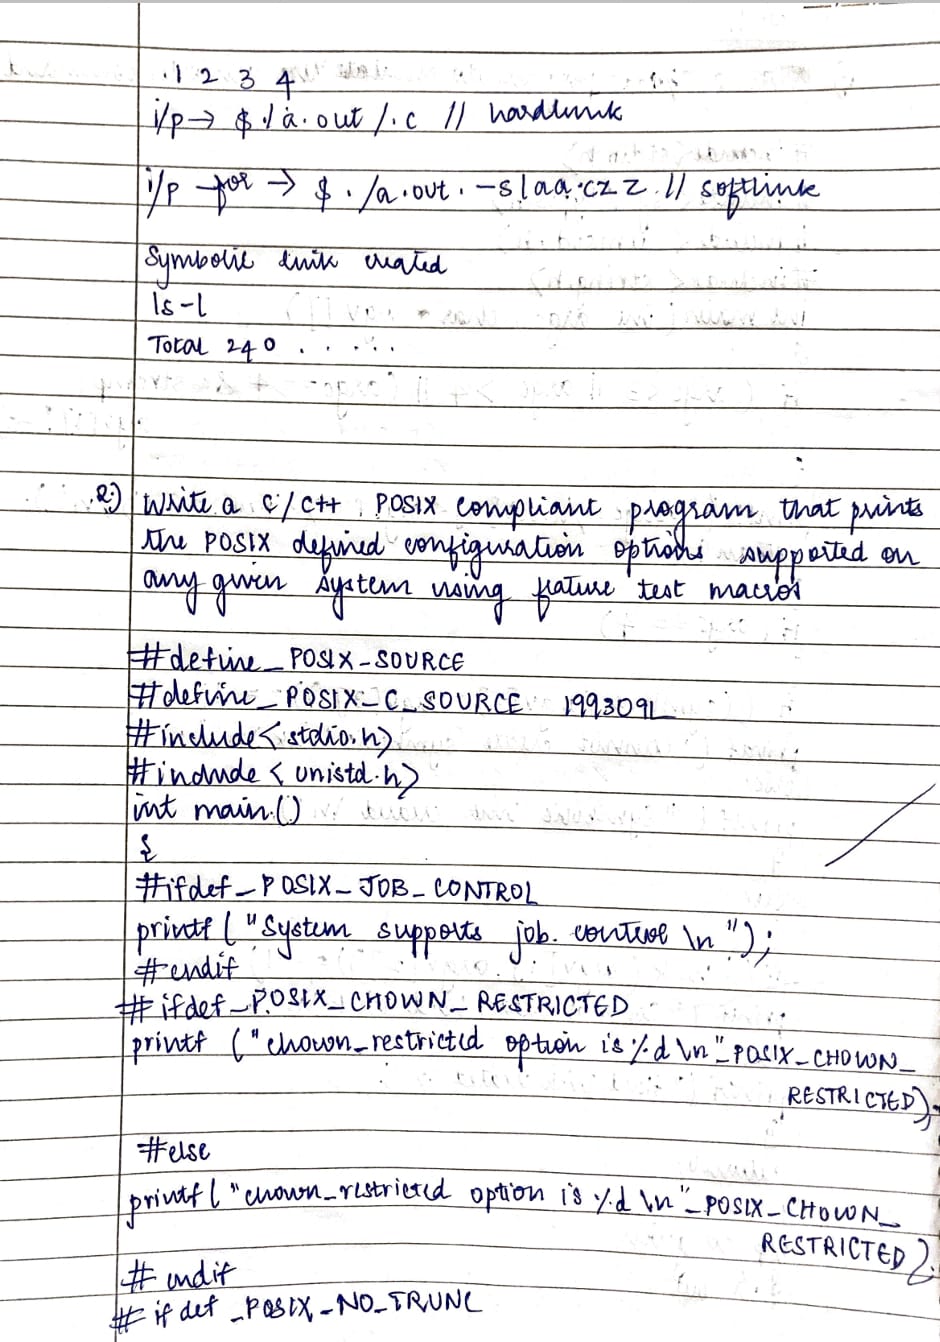 .1 2 3 4
i/p → $ ./a.out /.c // hardlink
i/p for → $ ./a.out. -s/aa.cz z // softlink
Symbolic link created
ls -l
Total 240 . . . . .
2) Write a c/c++ POSIX compliant program that prints
the POSIX defined configuration options supported on
any given system using feature test macros
#define _POSIX_SOURCE
#define _POSIX_C_SOURCE 199309L
#include <stdio.h>
#include <unistd.h>
int main()
{
#ifdef _POSIX_JOB_CONTROL
printf ("System supports job control \n");
#endif
#ifdef _POSIX_CHOWN_RESTRICTED
printf ("chown_restricted option is %d \n" _POSIX_CHOWN_
RESTRICTED);
#else
printf ("chown_restricted option is %d \n" _POSIX_CHOWN_
RESTRICTED);
#endif
#ifdef _POSIX_NO_TRUNC